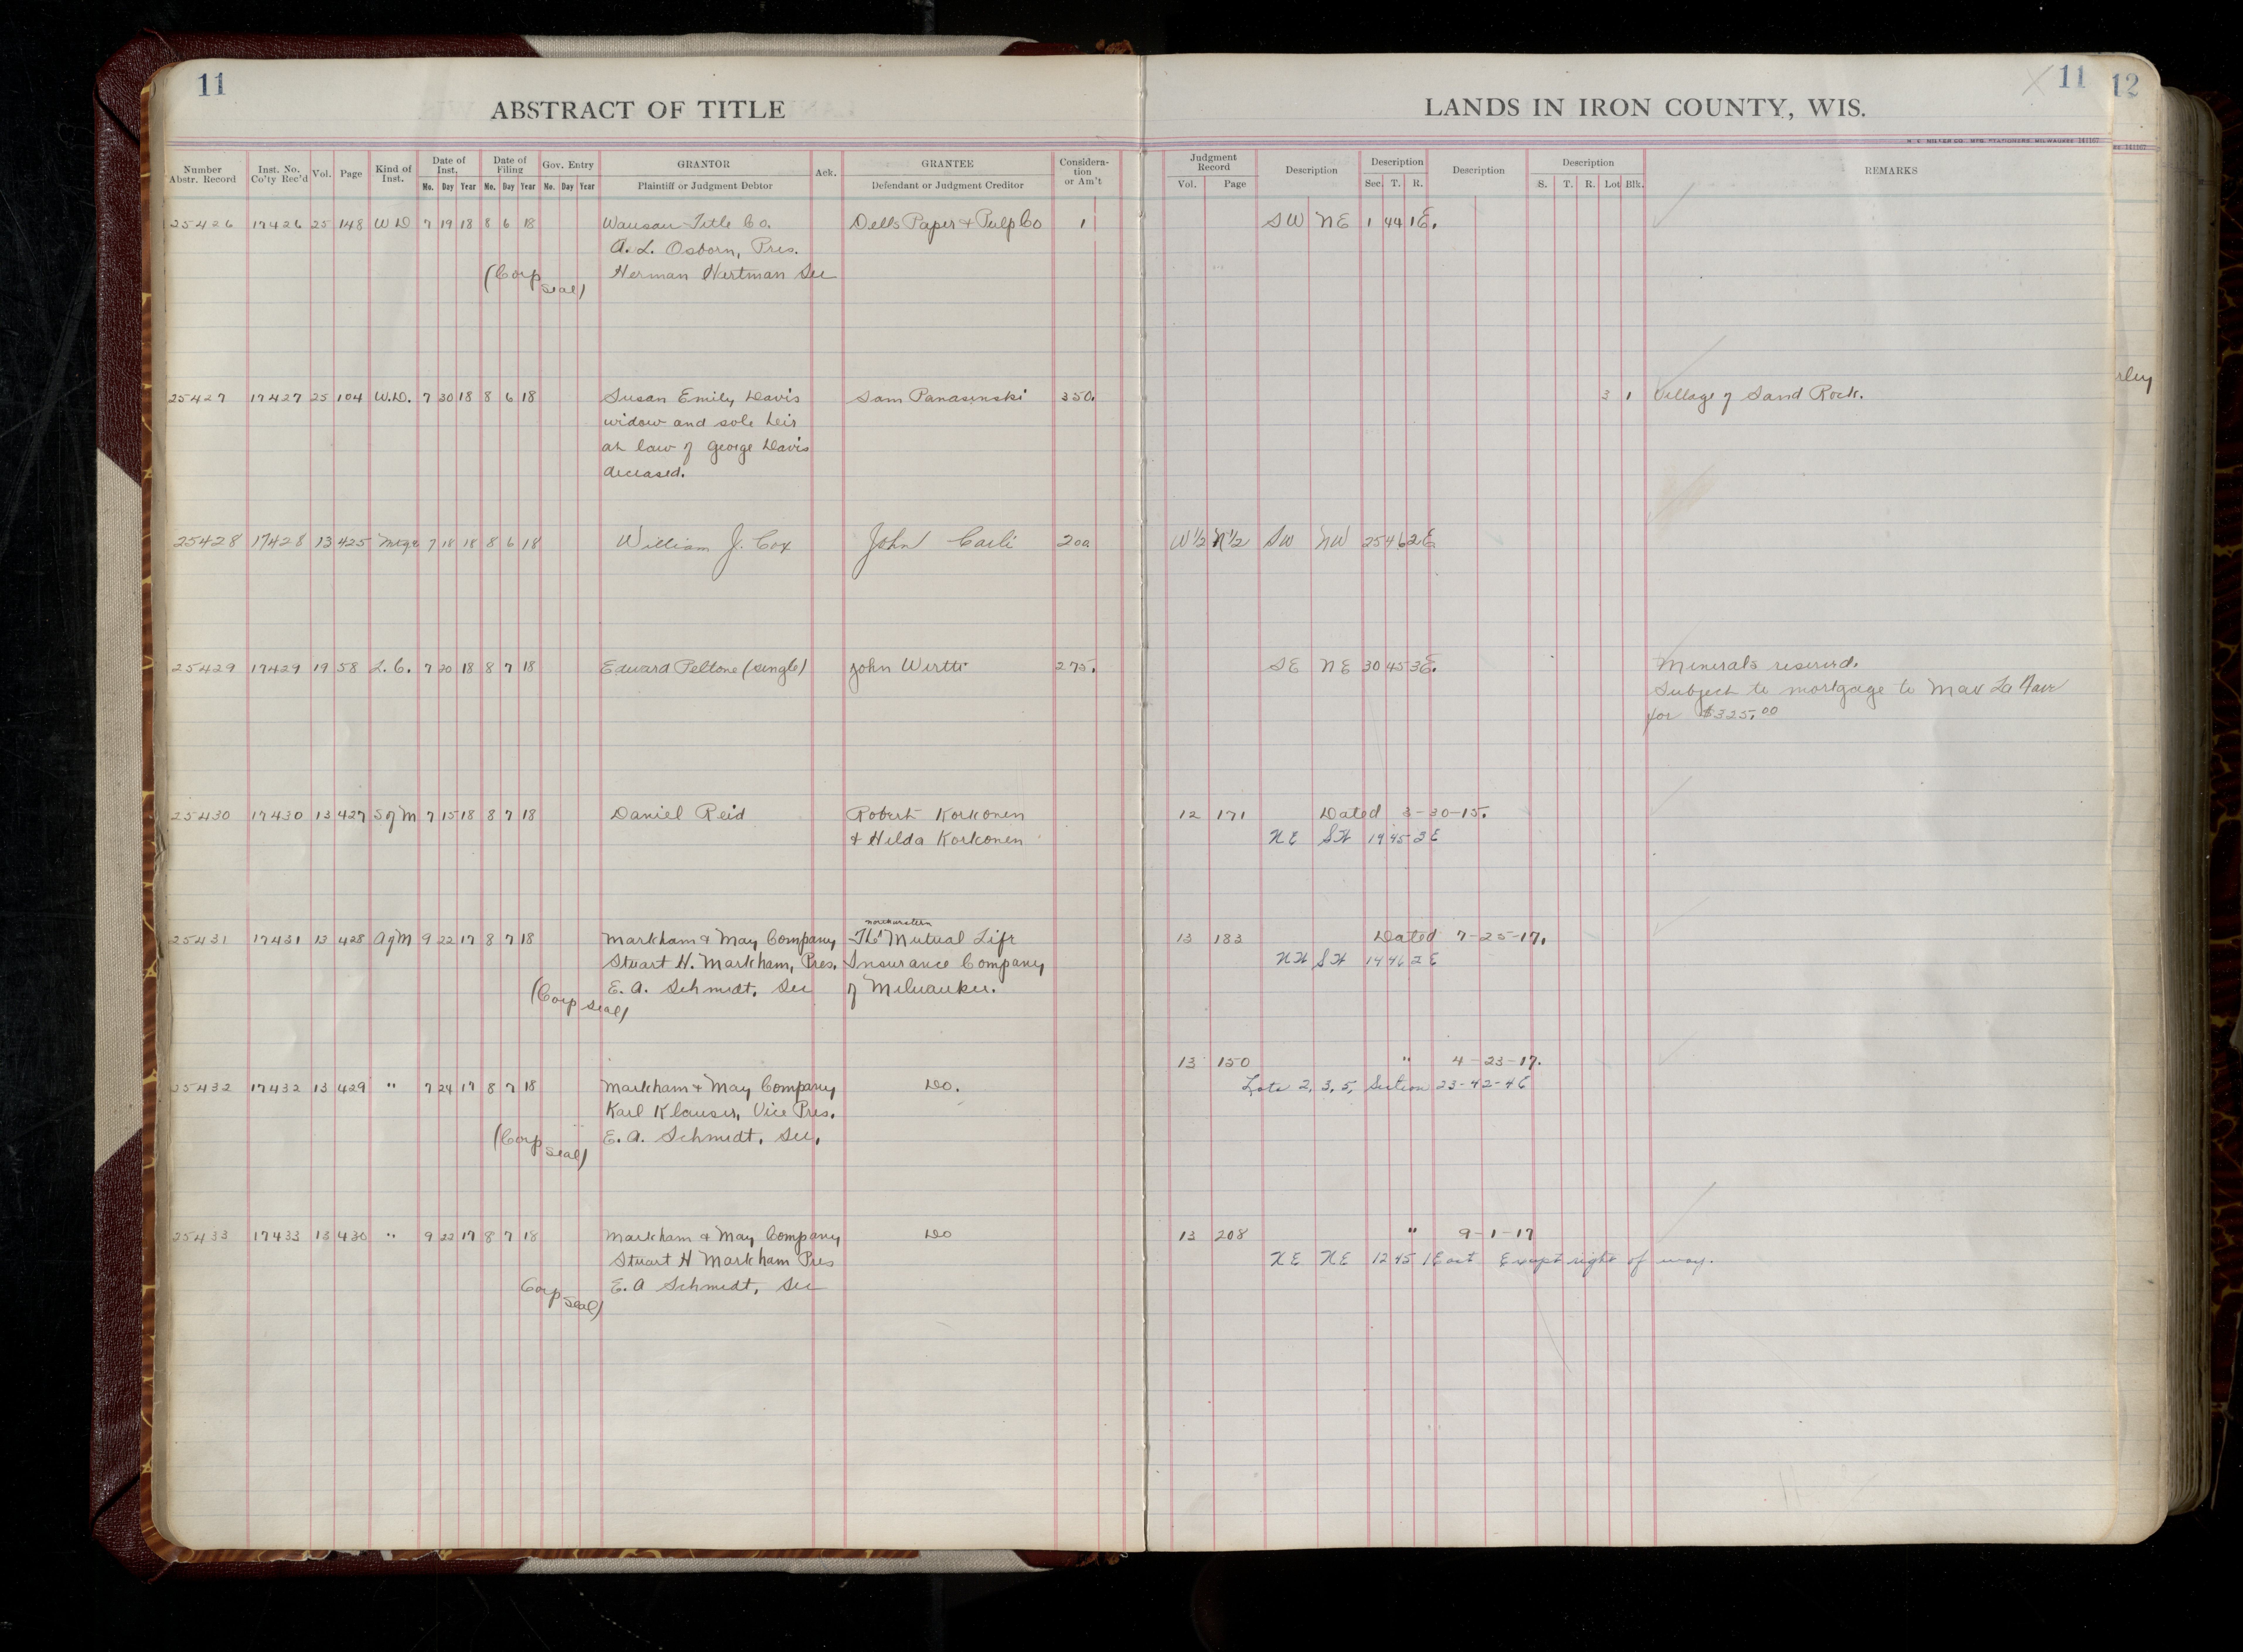 11
ABSTRACT OF TITLE
LANDS IN IRON COUNTY, WIS.
11
12
H. C. MILLER CO. MFG. STATIONERS, MILWAUKEE 141167
Number Abstr. Record | Inst. No. Co'ty Rec'd | Vol. | Page | Kind of Inst. | Date of Inst. Mo. Day Year | Date of Filing Mo. Day Year | Gov. Entry No. Day Year | GRANTOR Plaintiff or Judgment Debtor | Ack. | GRANTEE Defendant or Judgment Creditor | Consideration or Am't | Judgment Record Vol. Page | Description | Description Sec. T. R. | Description | Description S. T. R. Lot Blk. | REMARKS
25426 17426 25 148 W D 7 19 18 8 6 18 Wausau Title Co. Dells Paper & Pulp Co 1 SW NE 1 44 1E.
A. L. Osborn, Pres.
(Corp seal) Herman Hartman Sec
25427 17427 25 104 W.D. 7 30 18 8 6 18 Susan Emily Davis Sam Panasinski 350. 3 1 Village of Sand Rock.
widow and sole heir
at law of George Davis
deceased.
25428 17428 13 425 Mtge 7 18 18 8 6 18 William J. Cox John Carli 200 W 1/2 N 1/2 SW NW 25 46 2E
25429 17429 19 58 L. C. 7 20 18 8 7 18 Edward Peltone (single) John Wirtti 275. SE NE 30 45 3E. Minerals reserved.
Subject to mortgage to Max La Fave
for $325.00
25430 17430 13 427 S of M 7 15 18 8 7 18 Daniel Reid Robert Korkonen 12 171 Dated 3-30-15.
& Hilda Korkonen NE SW 19 45 3 E
northwestern
25431 17431 13 428 A of M 9 22 17 8 7 18 Markham & May Company The Mutual Life 13 183 Dated 7-25-17.
Stuart H. Markham, Pres. Insurance Company NW SW 14 46 2 E
(Corp seal) E. A. Schmidt, Sec of Milwaukee.
13 150 " 4-23-17.
25432 17432 13 429 " 7 24 17 8 7 18 Markham & May Company Do. Lots 2, 3, 5, Section 23-42-46
Karl Klauser, Vice Pres.
(Corp seal) E. A. Schmidt, Sec.
25433 17433 13 430 " 9 22 17 8 7 18 Markham & May Company Do 13 208 " 9-1-17
Stuart H Markham Pres NE NE 12 45 1 East Except right of way.
Corp seal) E. A Schmidt, Sec